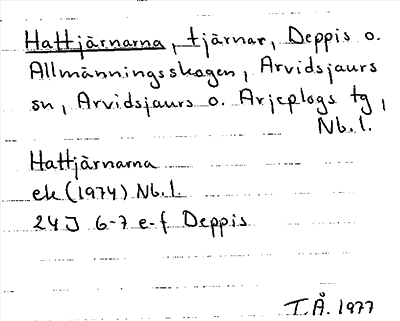 Hattjärnarna, tjärnar, Deppis o.
Allmänningsskogen, Arvidsjaurs
sn, Arvidsjaurs o. Arjeplogs tg,
Nb. l.
Hattjärnarna
ek (1974) Nb. l
24J 6-7 e-f Deppis
T.Å. 1977